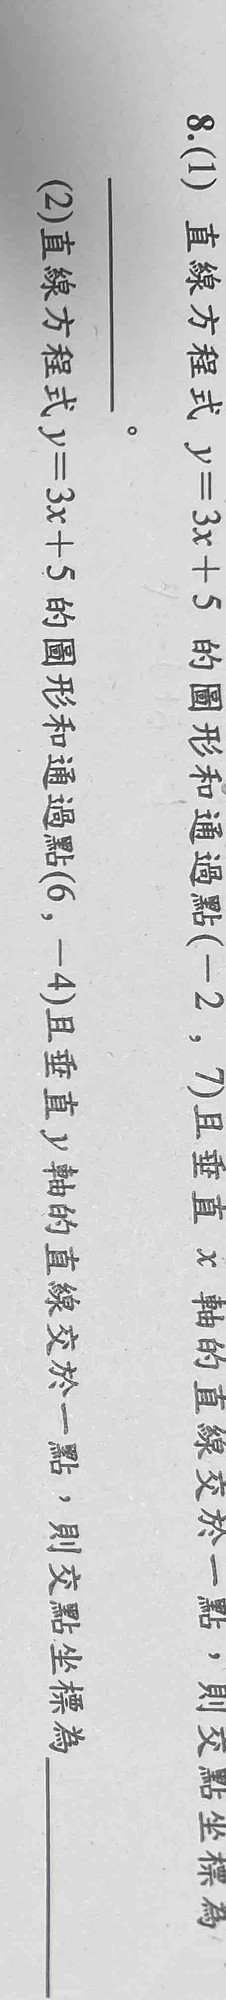 8.(1) 直線方程式 y=3x+5 的圖形和通過點(-2，7)且垂直 x 軸的直線交於一點，則交點坐標為
________。
(2)直線方程式y=3x+5的圖形和通過點(6，-4)且垂直y軸的直線交於一點，則交點坐標為________